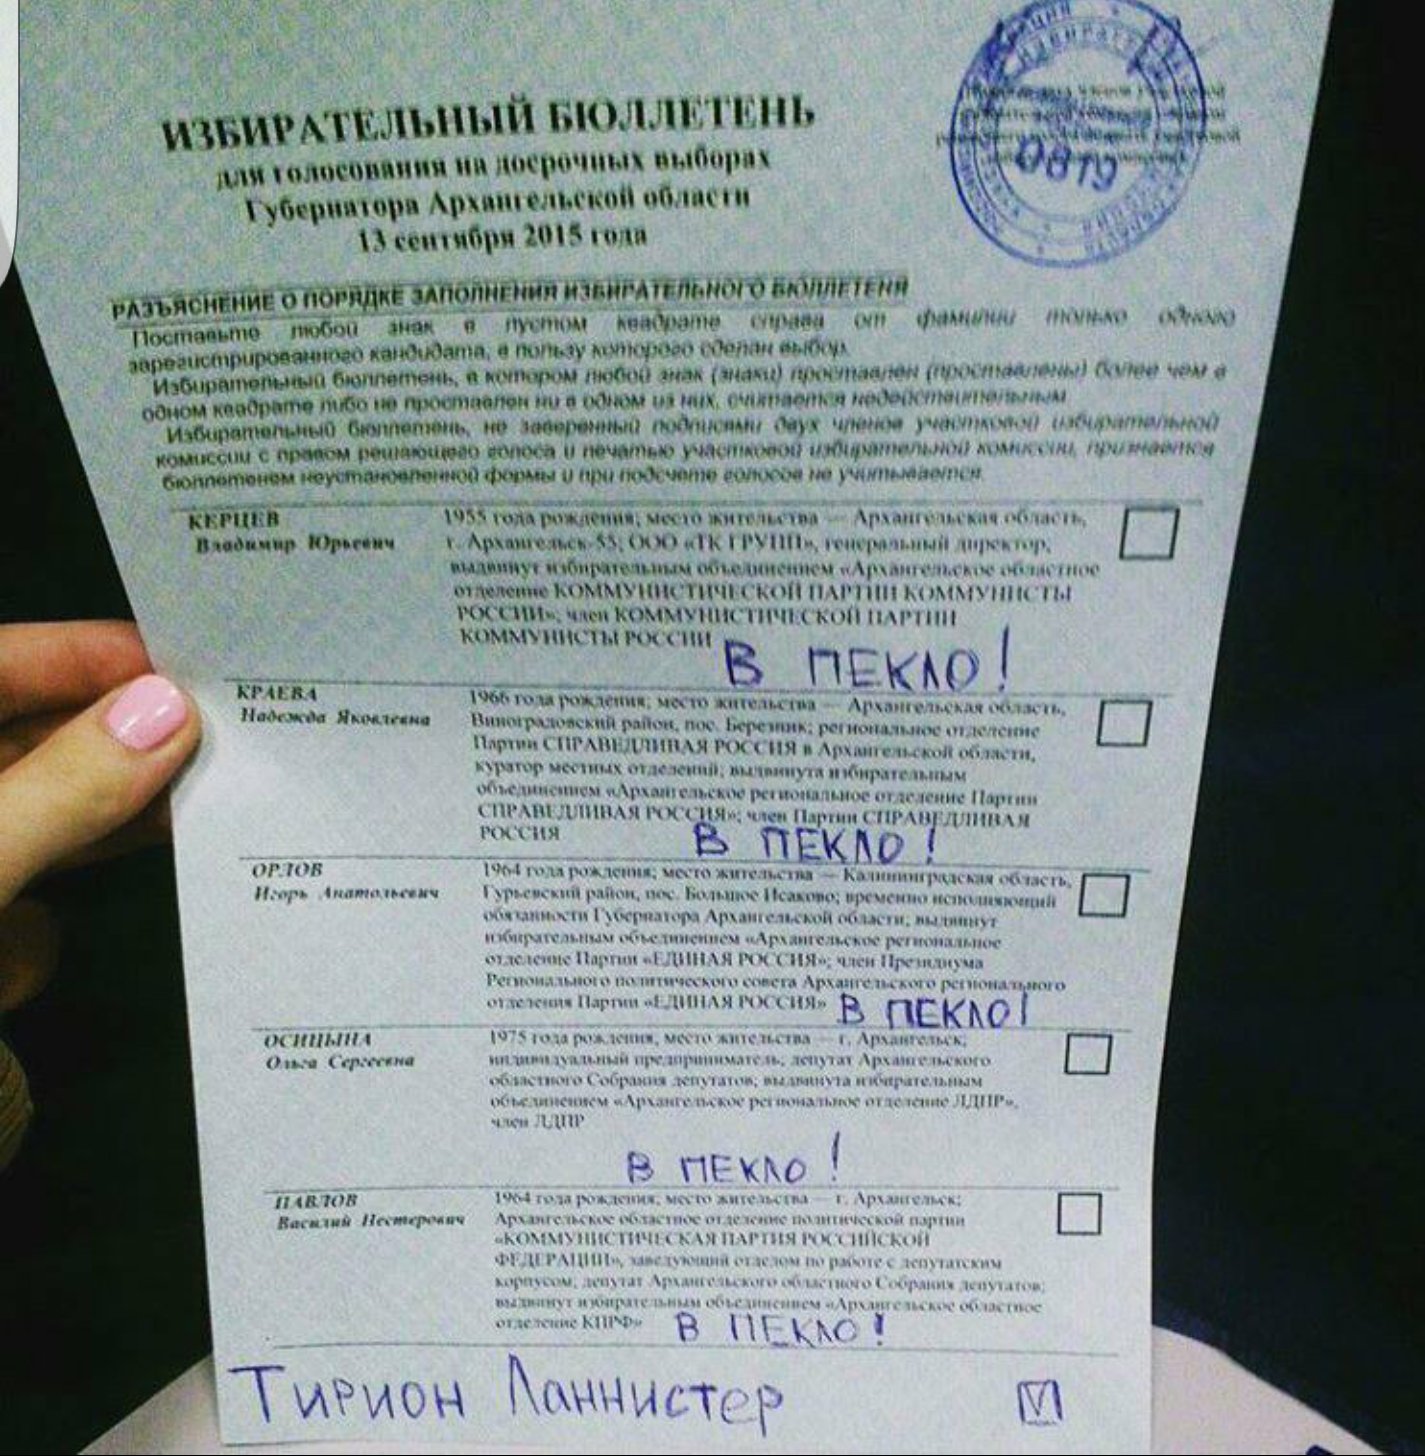 ИЗБИРАТЕЛЬНЫЙ БЮЛЛЕТЕНЬ
для голосования на досрочных выборах
Губернатора Архангельской области
13 сентября 2015 года
0819
РАЗЪЯСНЕНИЕ О ПОРЯДКЕ ЗАПОЛНЕНИЯ ИЗБИРАТЕЛЬНОГО БЮЛЛЕТЕНЯ
Поставьте любой знак в пустом квадрате справа от фамилии только одного
зарегистрированного кандидата, в пользу которого сделан выбор.
Избирательный бюллетень, в котором любой знак (знаки) проставлен (проставлены) более чем в
одном квадрате либо не проставлен ни в одном из них, считается недействительным.
Избирательный бюллетень, не заверенный подписями двух членов участковой избирательной
комиссии с правом решающего голоса и печатью участковой избирательной комиссии, признается
бюллетенем неустановленной формы и при подсчете голосов не учитывается.
КЕРЦЕВ
Владимир Юрьевич
1955 года рождения; место жительства — Архангельская область,
г. Архангельск-55; ООО «ТК ГРУПП», генеральный директор,
выдвинут избирательным объединением «Архангельское областное
отделение КОММУНИСТИЧЕСКОЙ ПАРТИИ КОММУНИСТЫ
РОССИИ», член КОММУНИСТИЧЕСКОЙ ПАРТИИ
КОММУНИСТЫ РОССИИ
В ПЕКЛО!
КРАЕВА
Надежда Яковлевна
1966 года рождения; место жительства — Архангельская область,
Виноградовский район, пос. Березник; региональное отделение
Партии СПРАВЕДЛИВАЯ РОССИЯ в Архангельской области,
куратор местных отделений; выдвинута избирательным
объединением «Архангельское региональное отделение Партии
СПРАВЕДЛИВАЯ РОССИЯ»; член Партии СПРАВЕДЛИВАЯ
РОССИЯ
В ПЕКЛО!
ОРЛОВ
Игорь Анатольевич
1964 года рождения; место жительства — Калининградская область,
Гурьевский район, пос. Большое Исаково; временно исполняющий
обязанности Губернатора Архангельской области; выдвинут
избирательным объединением «Архангельское региональное
отделение Партии «ЕДИНАЯ РОССИЯ»; член Президиума
Регионального политического совета Архангельского регионального
отделения Партии «ЕДИНАЯ РОССИЯ»
В ПЕКЛО!
ОСИЦЫНА
Ольга Сергеевна
1975 года рождения, место жительства — г. Архангельск;
индивидуальный предприниматель, депутат Архангельского
областного Собрания депутатов; выдвинута избирательным
объединением «Архангельское региональное отделение ЛДПР»,
член ЛДПР
В ПЕКЛО!
ПАВЛОВ
Василий Нестерович
1964 года рождения; место жительства — г. Архангельск;
Архангельское областное отделение политической партии
«КОММУНИСТИЧЕСКАЯ ПАРТИЯ РОССИЙСКОЙ
ФЕДЕРАЦИИ», заведующий отделом по работе с депутатским
корпусом; депутат Архангельского областного Собрания депутатов;
выдвинут избирательным объединением «Архангельское областное
отделение КПРФ»
В ПЕКЛО!
Тирион Ланнистер